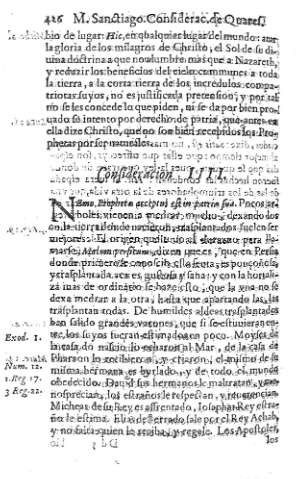 426 M. Sanctiago. Considerac. de Quares.
bio de lugar: Hic, en qualquier lugar del mundo: aun
la gloria de los milagros de Christo, el Sol de su di-
uina doctrina a que no alumbre mas que a Nazareth,
y reduzir los beneficios del cielo communes a toda
la tierra, a la corta tierra de los incredulos compa-
triotas suyos, no es justificada pretension; y por tal
no se les concede lo que piden, ni se da por bien pro-
uado su intento por derecho de patria, que antes en
ella dize Christo, que no son bien recebidos los Pro-
phetas por ser naturales.
Consideracion IIII.
NEmo Propheta acceptus est in patria sua. Pocos ar-
boles vienen a medrar mucho, dexandolos
en la tierra donde nacieron, trasplantados suelen ser
mejores. El origen que tuuo el
dizen que es, que en Persia
donde primero se conocio, ella fruta, es ponçoñosa
y trasplantada, vca es, gustosa y sana: y con la hortali-
za mas de ordinario se haze esto, que la vna no se
dexa medrar a la otra, hasta que apartando las, las
trasplantan todas. De humildes aldeas trasplantados
han salido grandes varones, que si se estuuieran en-
tre los suyos fueran estimados en poco. Moyses de
Exod. 1. la casa do nacio lo echaron al Mar, de la casa de
Pharaon le recibieron, y criaron, el mismo de su
Num. 12. misma hermana es burlado, y de todo el mundo
1. Reg 17. obedecido. Dauid sus hermanos le maltratan, y me-
3 Reg. 22. nosprecian, los estraños le respetan, y reuerencian.
Micheas de su Rey es affrentado, Iosaphat Rey estra-
ño le estima. Elias desterrado sale por el Rey Achab,
y no falta quien le reciba, y regale. Los Apostoles,
los